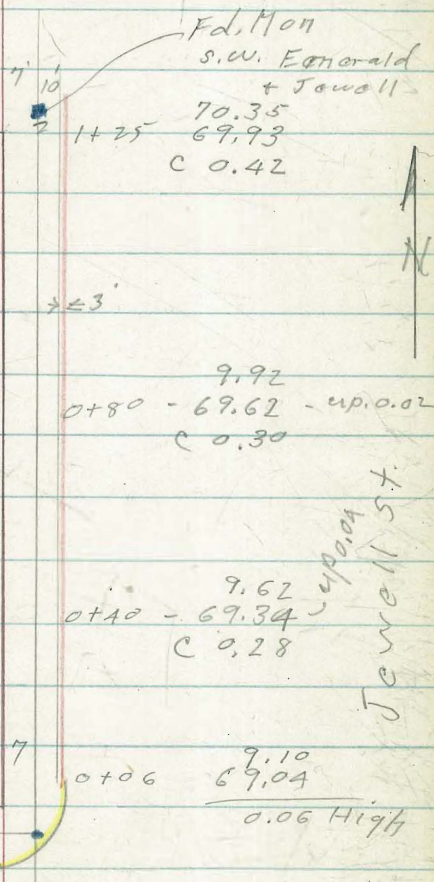 Fd. Mon
S.W. Emerald
+ Jewell
7' 10'
2
70.35
1+25 69.93
C 0.42
N
3'
9.92
0+80 - 69.62 - up.0.02
C 0.30
9.62
0+40 - 69.34 - up 0.04
C 0.28
Jewell St.
7
9.10
0+06 69.04
0.06 High